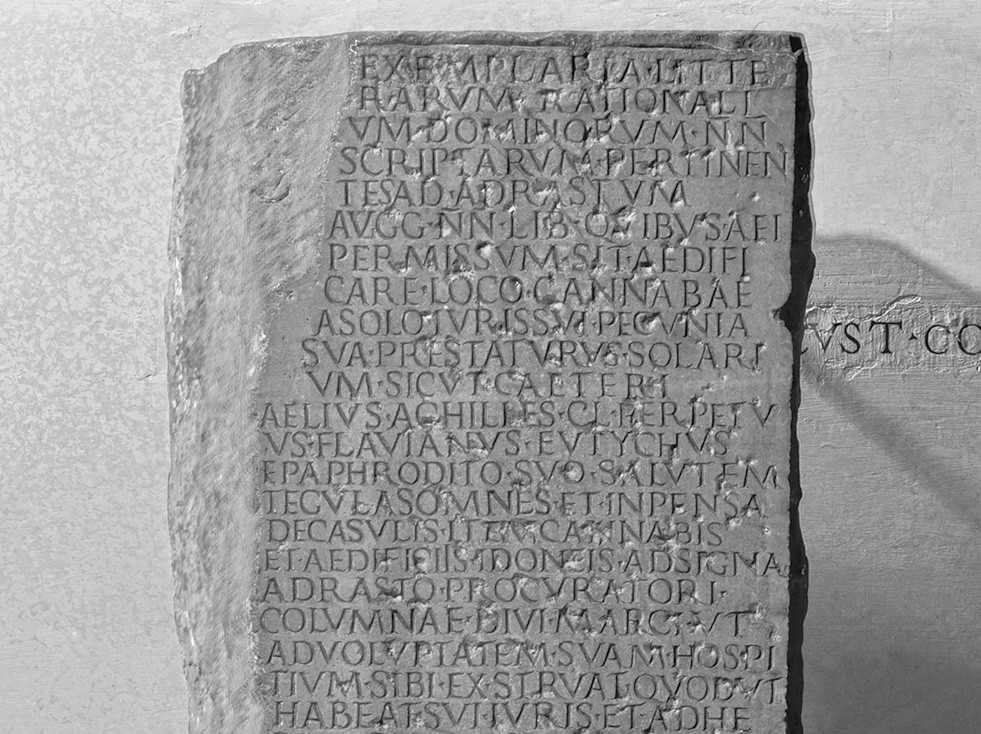 EXEMPLARIA·LITTE
RARVM·RATIONALI
VM·DOMINORVM·NN
SCRIPTARVM·PERTINEN
TESAD·ADRASTVM
AVGG·NN·LIB·QVIBVS·AEI
PERMISSVM·SIT·AEDIFI
CARE·LOCO·CANNABAE
ASOLOIVRISSVI·PECVNIA
SVA·PRESTATVRVS·SOLARI
VM·SICVT·CAETERI
AELIVS·ACHILLES·CL·PERPETV
VS·FLAVIANVS·EVTYCHVS
EPAPHRODITO·SVO·SALVTEM
TEGVLASOMNES·ET·INPENSA
DECASVLIS·ITEM·CANNABIS
ET·AEDIFICIIS·IDONEIS·ADSIGNA
ADRASTO·PROCVRATORI·
COLVMNAE·DIVI·MARCI·VT
ADVOLVPTATEM·SVAM·HOSPI
TIVM·SIBI·EXSTRVAT·QVOD·VT
HABEAT·SVI·IVRIS·ET·ADHE
CVST·CO